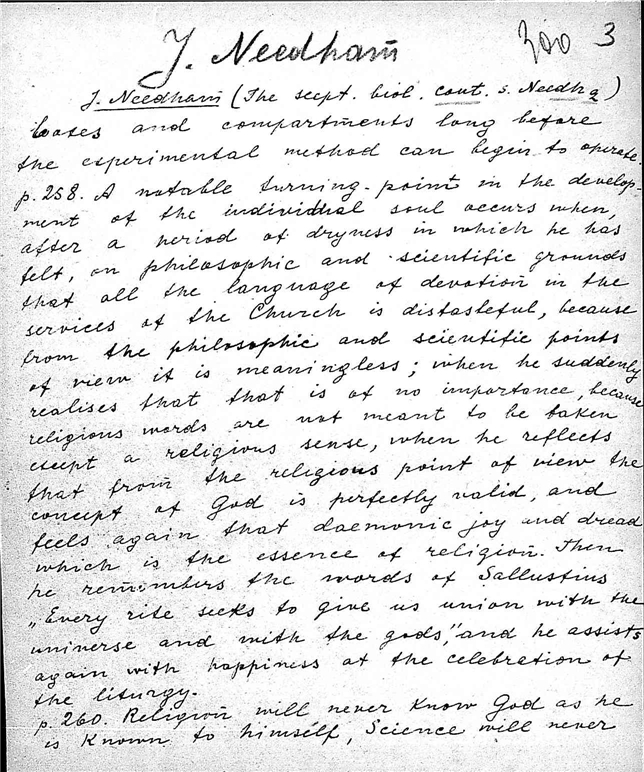 300 3
J. Needham
J. Needham (The scept. biol. cont. s. Needh a)
boxes and compartments long before
the experimental method can begin to operate.
p. 258. A notable turning-point in the develop-
ment of the individual soul occurs when,
after a period of dryness in which he has
felt, on philosophic and scientific grounds
that all the language of devotion in the
services of the Church is distasteful, because
from the philosophic and scientific points
of view it is meaningless; when he suddenly
realises that that is of no importance, because
religious words are not meant to be taken
except a religious sense, when he reflects
that from the religious point of view the
concept of God is perfectly valid, and
feels again that daemonic joy and dread
which is the essence of religion. Then
he remembers the words of Sallustius
„Every rite seeks to give us union with the
universe and with the gods," and he assists
again with happiness at the celebration of
the liturgy.
p. 260. Religion will never know God as he
is known to himself, Science will never